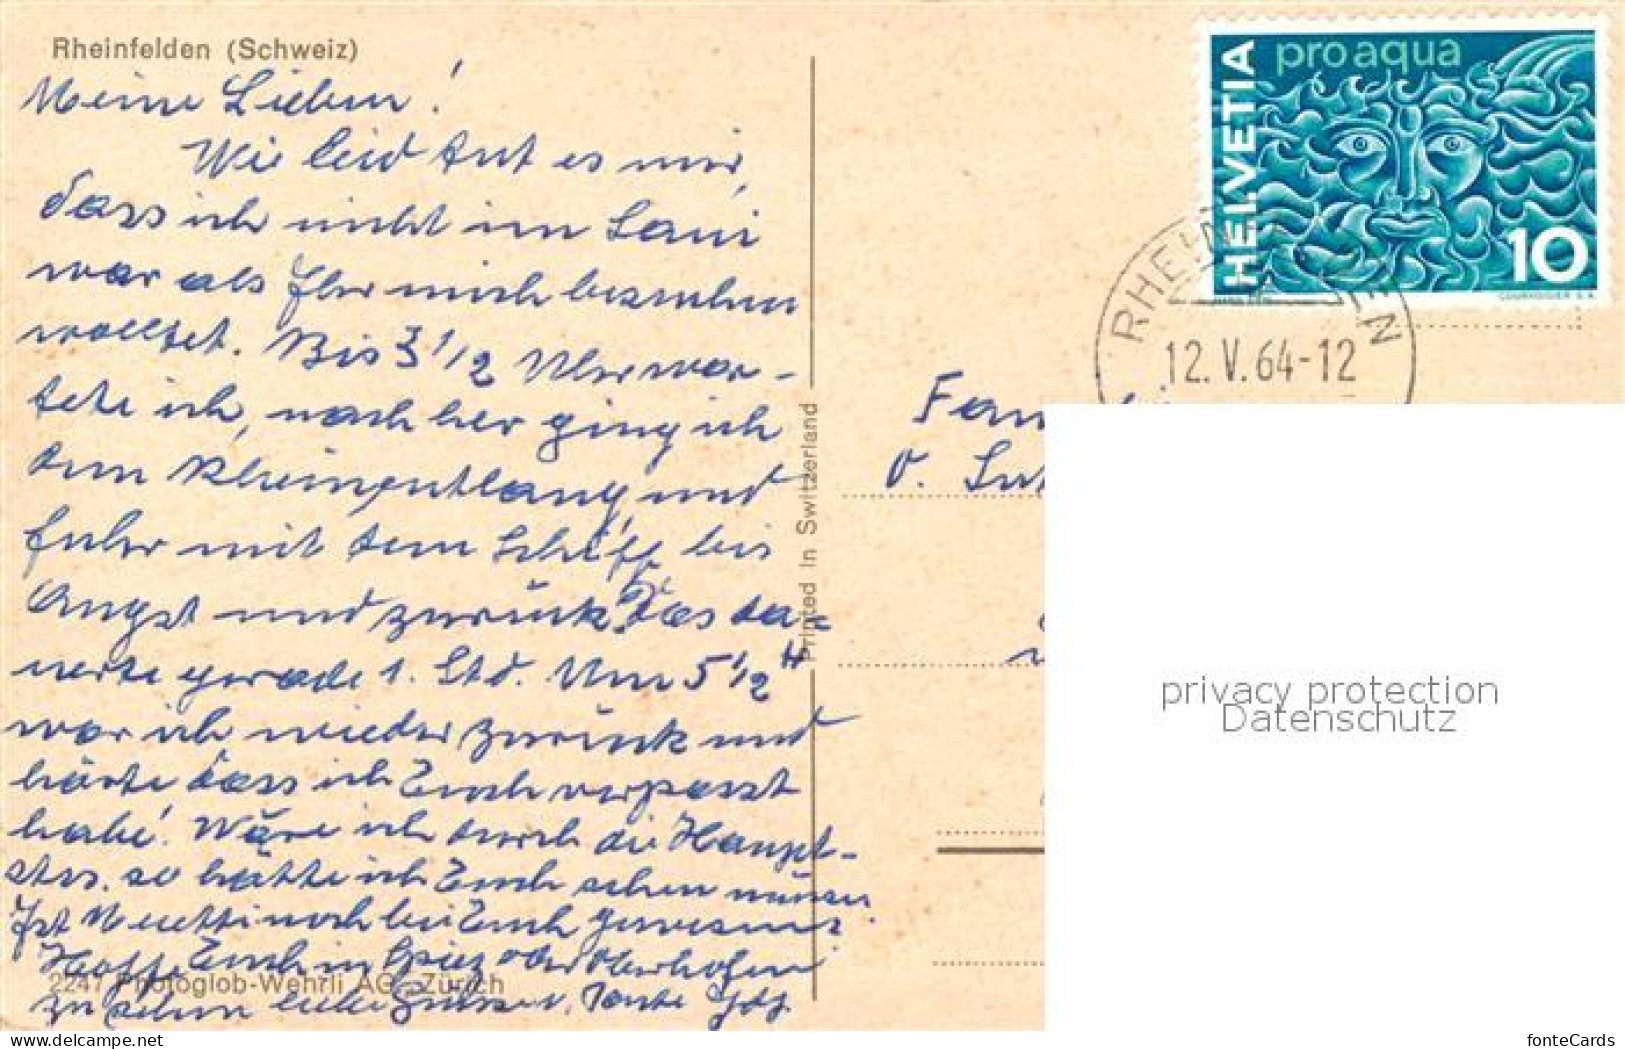 Rheinfelden (Schweiz)
Meine Lieben!
Wie leid tut es mir,
dass ich nicht im Sani
war als Ihr mich besuchen
wolltet. Bis 3 1/2 Uhr war-
tete ich, nachher ging ich
dem Rhein entlang und
fuhr mit dem Schiff bis
Augst und zurück. Das da=
uerte gerade 1. Std. Um 5 1/2 H
war ich wieder zurück und
hörte dass ich Euch verpasst
habe! Wäre ich durch die Haupt-
strs. so hätte ich Euch sehen müssen.
Ist Muetti noch bei Euch gewesen?
Hoffe Euch in Spiez oder Oberhofen
2247 Photoglob-Wehrli AG, Zürich
zu sehen liebe Grüsse v. Tante
Printed in Switzerland
HELVETIA
pro aqua
10
COURVOISIER S.A.
RHEINFELDEN
12.V.64-12
Fam
v.
privacy protection
Datenschutz
www.delcampe.net
fonteCards